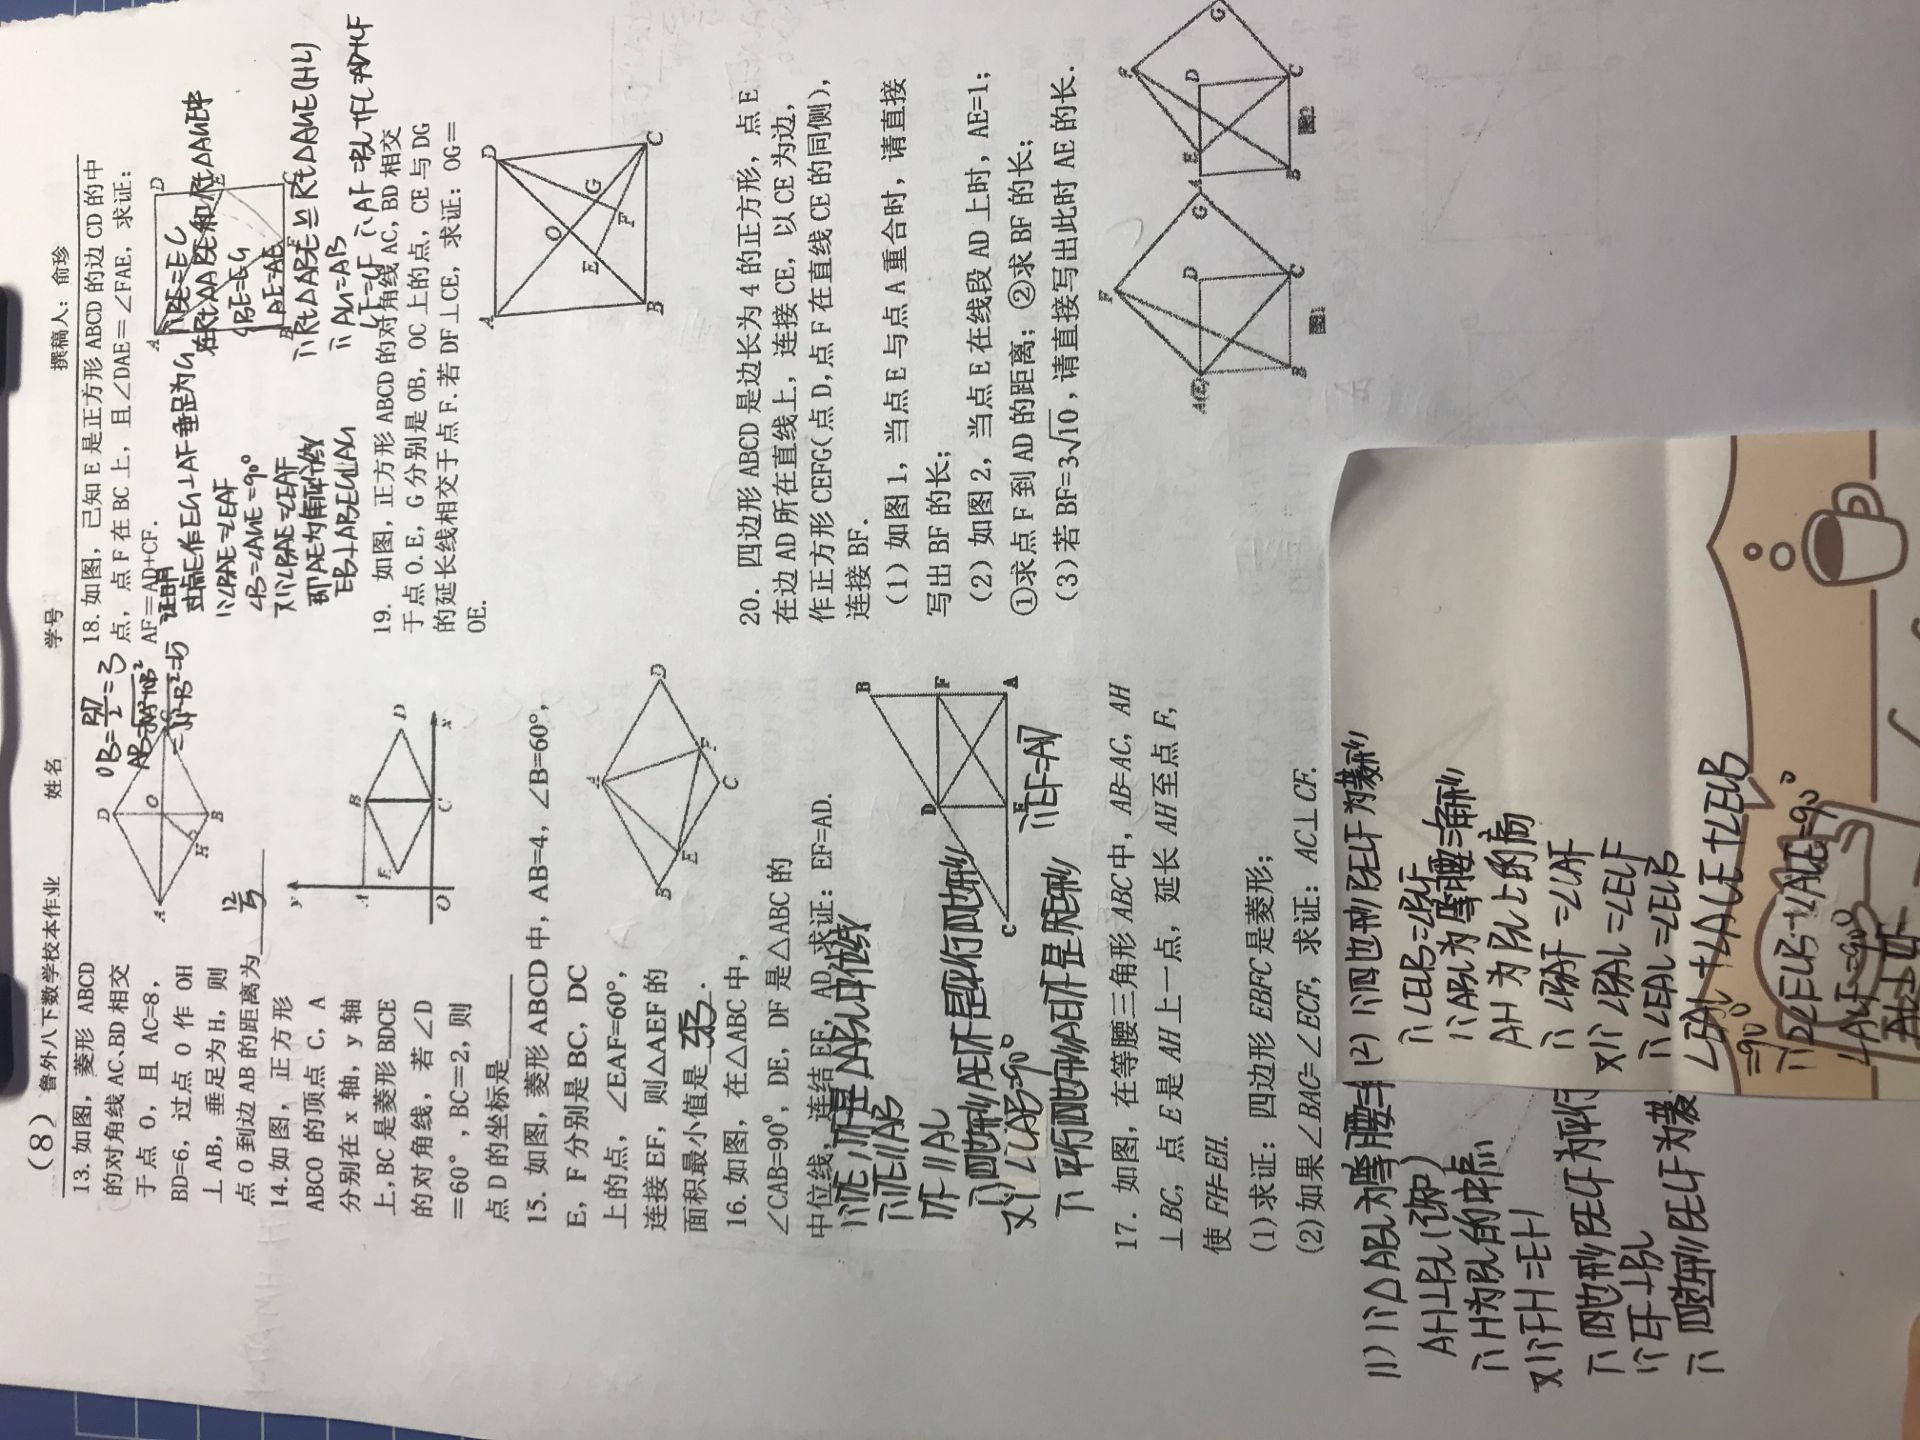 （8）鲁外八下数学校本作业 姓名 学号 撰稿人：俞珍
13.如图，菱形 ABCD
的对角线 AC、BD 相交
于点 O，且 AC=8，
BD=6，过点 O 作 OH
⊥AB，垂足为 H，则
点 O 到边 AB 的距离为 12/5
D
A
O
H
B
OB=BD/2=3
AB=√OA²+OB²
=√4²+3²=5
14.如图，正方形
ABCO 的顶点 C，A
分别在 x 轴，y 轴
上，BC 是菱形 BDCE
的对角线，若∠D
=60°，BC=2，则
点 D 的坐标是______
y
A B
E D
O C x
15. 如图，菱形 ABCD 中，AB=4，∠B=60°，
E，F 分别是 BC，DC
上的点，∠EAF=60°，
连接 EF，则△AEF 的
面积最小值是 3√3 .
A
B D
E F
C
16.如图，在△ABC 中，
∠CAB=90⁰，DE，DF 是△ABC 的
中位线，连结 EF，AD.求证：EF=AD.
∵DE,DF是△ABC中位线
∴DE∥AB
DF∥AC
∴四边形AEDF是平行四边形
又∵∠CAB=90°
∴平行四边形AEDF是矩形
∴EF=AD
B
D F
C E A
17. 如图，在等腰三角形 ABC 中，AB=AC，AH
⊥BC，点 E 是 AH 上一点，延长 AH 至点 F，
使 FH=EH.
(1)求证：四边形 EBFC 是菱形；
(2)如果∠BAC=∠ECF，求证：AC⊥CF.
(1)∵△ABC为等腰三
AH⊥BC(已知)
∴H为BC的中点
又∵FH=EH
∴四边形BECF为平行
∵EF⊥BC
∴四边形BECF为菱
(2)∵四边形BECF为菱形
∴∠ECB=∠BCF
∵ABC为等腰三角形
AH为BC上的高
∴∠BAF=∠CAF
又∵∠BAC=∠ECF
∴∠EAC=∠ECB
∠EAC+∠ACE+∠ECB
=90°
∴2∠ECB+∠ACE=90°
∠ACF=90°
AC⊥CF
18.如图，已知 E 是正方形 ABCD 的边 CD 的中
点，点 F 在 BC 上，且∠DAE=∠FAE，求证：
AF=AD+CF.
证明
过点E作EG⊥AF垂足为G
∵∠BAE=∠EAF
∠B=∠AGE=90°
又∵∠BAE=∠EAF
即AE为角平分线
EB⊥ABEG⊥AG
∴BE=EG
在Rt△ABE和Rt△AGE中
BE=EG
AE=AE
∴Rt△ABE≌Rt△AGE(HL)
∴AG=AB
CF=CF ∴AF=BC+FC=AD+CF
A D
E
B F C
19. 如图，正方形 ABCD 的对角线 AC，BD 相交
于点 O.E，G 分别是 OB，OC 上的点，CE 与 DG
的延长线相交于点 F.若 DF⊥CE，求证：OG=
OE.
A D
O
E G
F
B C
20. 四边形 ABCD 是边长为 4 的正方形，点 E
在边 AD 所在直线上，连接 CE，以 CE 为边，
作正方形 CEFG(点 D，点 F 在直线 CE 的同侧)，
连接 BF.
（1）如图 1，当点 E 与点 A 重合时，请直接
写出 BF 的长；
（2）如图 2，当点 E 在线段 AD 上时，AE=1；
①求点 F 到 AD 的距离；②求 BF 的长；
（3）若 BF=3√10，请直接写出此时 AE 的长.
F
A(E) D G
B C
图1
F
A E D
G
B C
图2